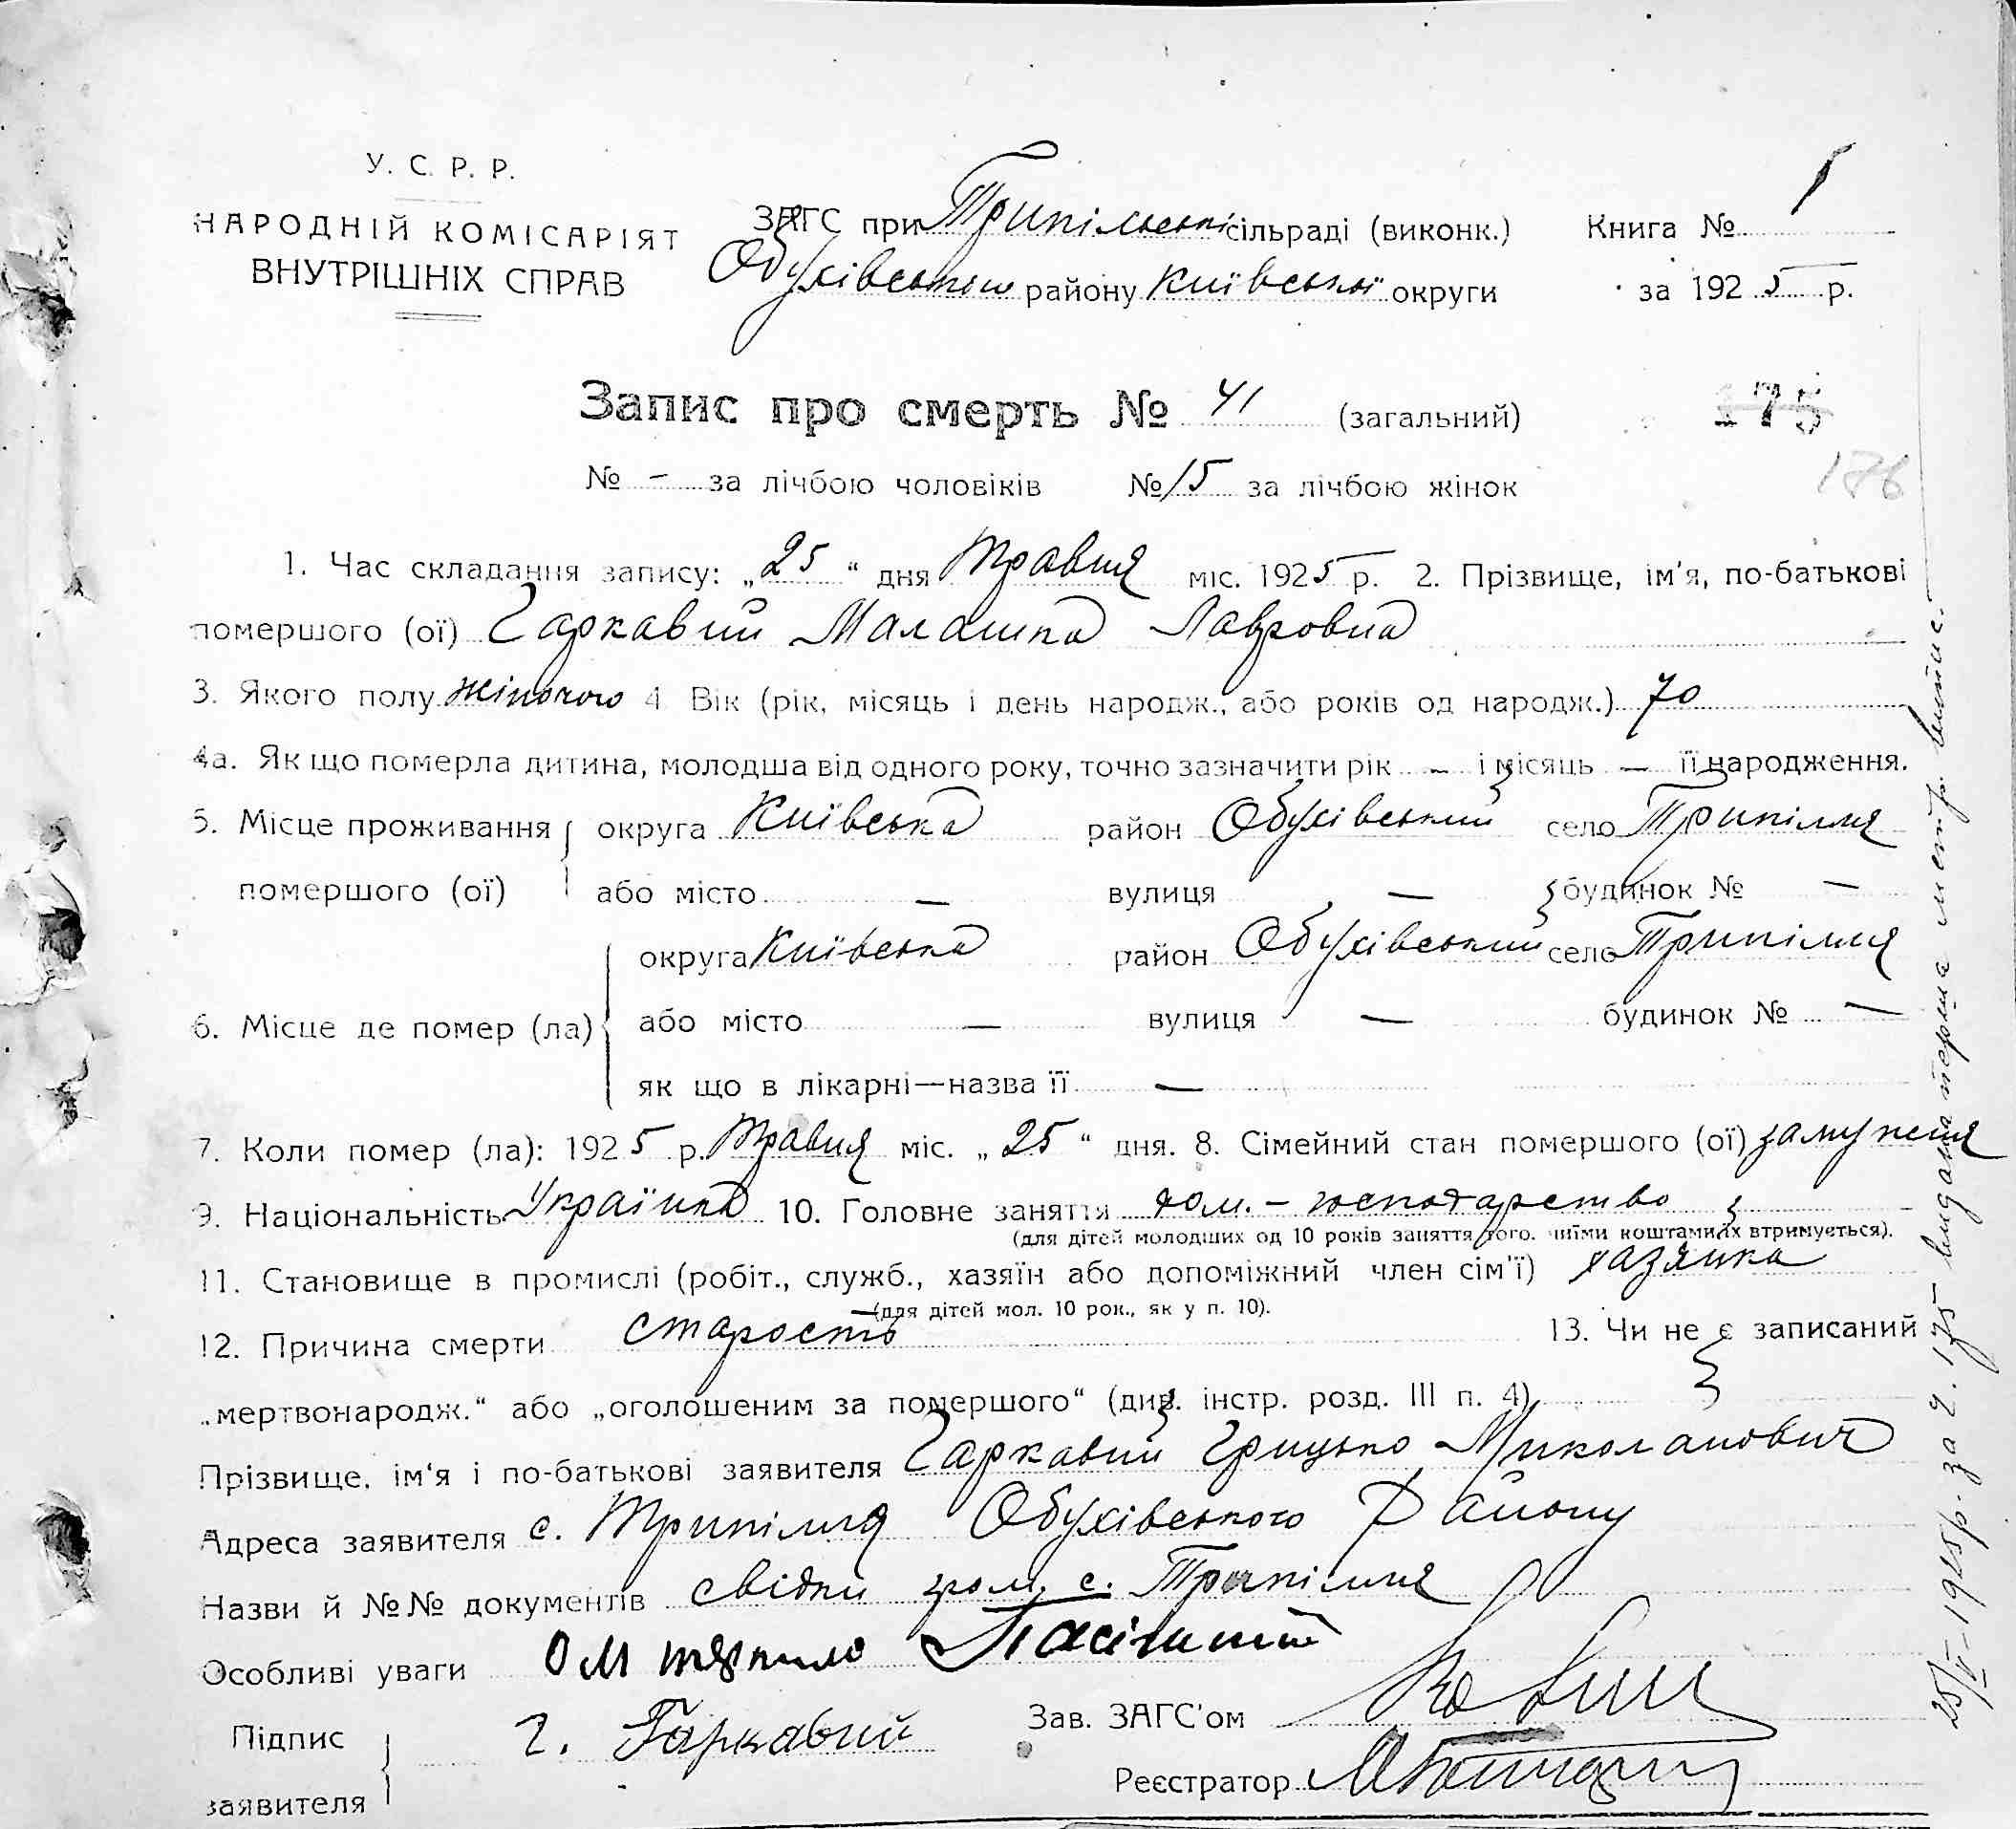 У. С. Р. Р.
НАРОДНІЙ КОМІСАРІЯТ
ВНУТРІШНІХ СПРАВ
ЗАГС при Трипільській сільраді (виконк.)
Обухівського району Київської округи
Книга № 1
за 1925 р.
Запис про смерть № 41 (загальний)
175
№ - за лічбою чоловіків №15 за лічбою жінок
176
1. Час складання запису: „25“ дня травня міс. 1925 р. 2. Прізвище, ім'я, по-батькові
помершого (ої) Гаркавий Малашка Лавровна
3. Якого полу жіночого 4 Вік (рік, місяць і день народж., або років од народж.) 70
4а. Як що померла дитина, молодша від одного року, точно зазначити рік - і місяць — її народження.
5. Місце проживання округа Київська район Обухівський село Трипілля
помершого (ої) або місто — вулиця — будинок № —
округа Київська район Обухівський село Трипілля
6. Місце де помер (ла) або місто — вулиця — будинок № —
як що в лікарні—назва її —
7. Коли помер (ла): 1925 р. травня міс. „25“ дня. 8. Сімейний стан помершого (ої) замужня
9. Національність Українка 10. Головне заняття дом.-господарство
(для дітей молодших од 10 років заняття того, чиїми коштами їх втримується).
11. Становище в промислі (робіт., служб., хазяїн або допоміжний член сім'ї) хазяйка
(для дітей мол. 10 рок., як у п. 10).
12. Причина смерти старость 13. Чи не є записаний
„мертвонародж.“ або „оголошеним за помершого“ (див. інстр. розд. III п. 4)
Прізвище, ім'я і по-батькові заявителя Гаркавий Грицько Миколайович
Адреса заявителя с. Трипілля Обухівського Району
Назви й №№ документів свідки гром. с. Трипілля
Особливі уваги
Підпис
заявителя
Г. Гаркавий
Зав. ЗАГС'ом
Реєстратор
25/V-1925р. за Ч. 175 видана перша метр. випис.